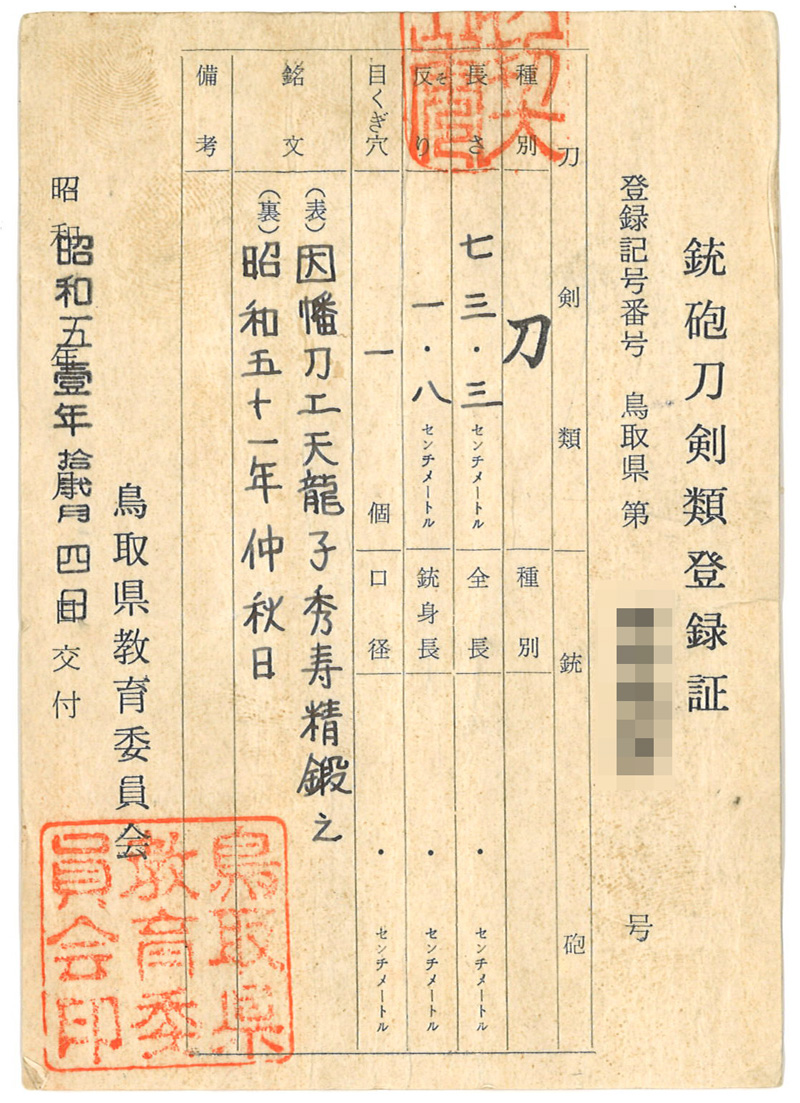 銃砲刀剣類登録証
登録記号番号 鳥取県 第 号
刀剣類 銃砲
種別 刀 種別
長さ 七三・三 センチメートル 全長 ・ センチメートル
反り そ 一・八 センチメートル 銃身長 ・ センチメートル
目くぎ穴 一 個 口径 ・ センチメートル
銘文 (表) 因幡刀工天龍子秀寿精鍛之
(裏) 昭和五十一年仲秋日
備考
鳥取県教育委員会
昭和 昭和五壹年 年 拾弐月 月 四日 日 交付
鳥取県
教育委
員会印